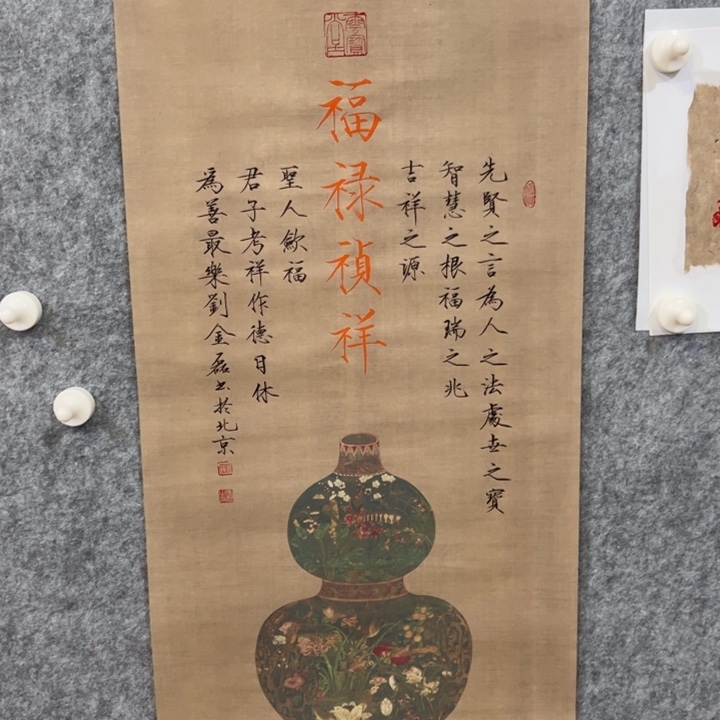 福祿禎祥
先賢之言為人之法處世之寶
智慧之根福瑞之兆
吉祥之源
聖人歛福
君子考祥作德日休
為善最樂劉金磊书於北京